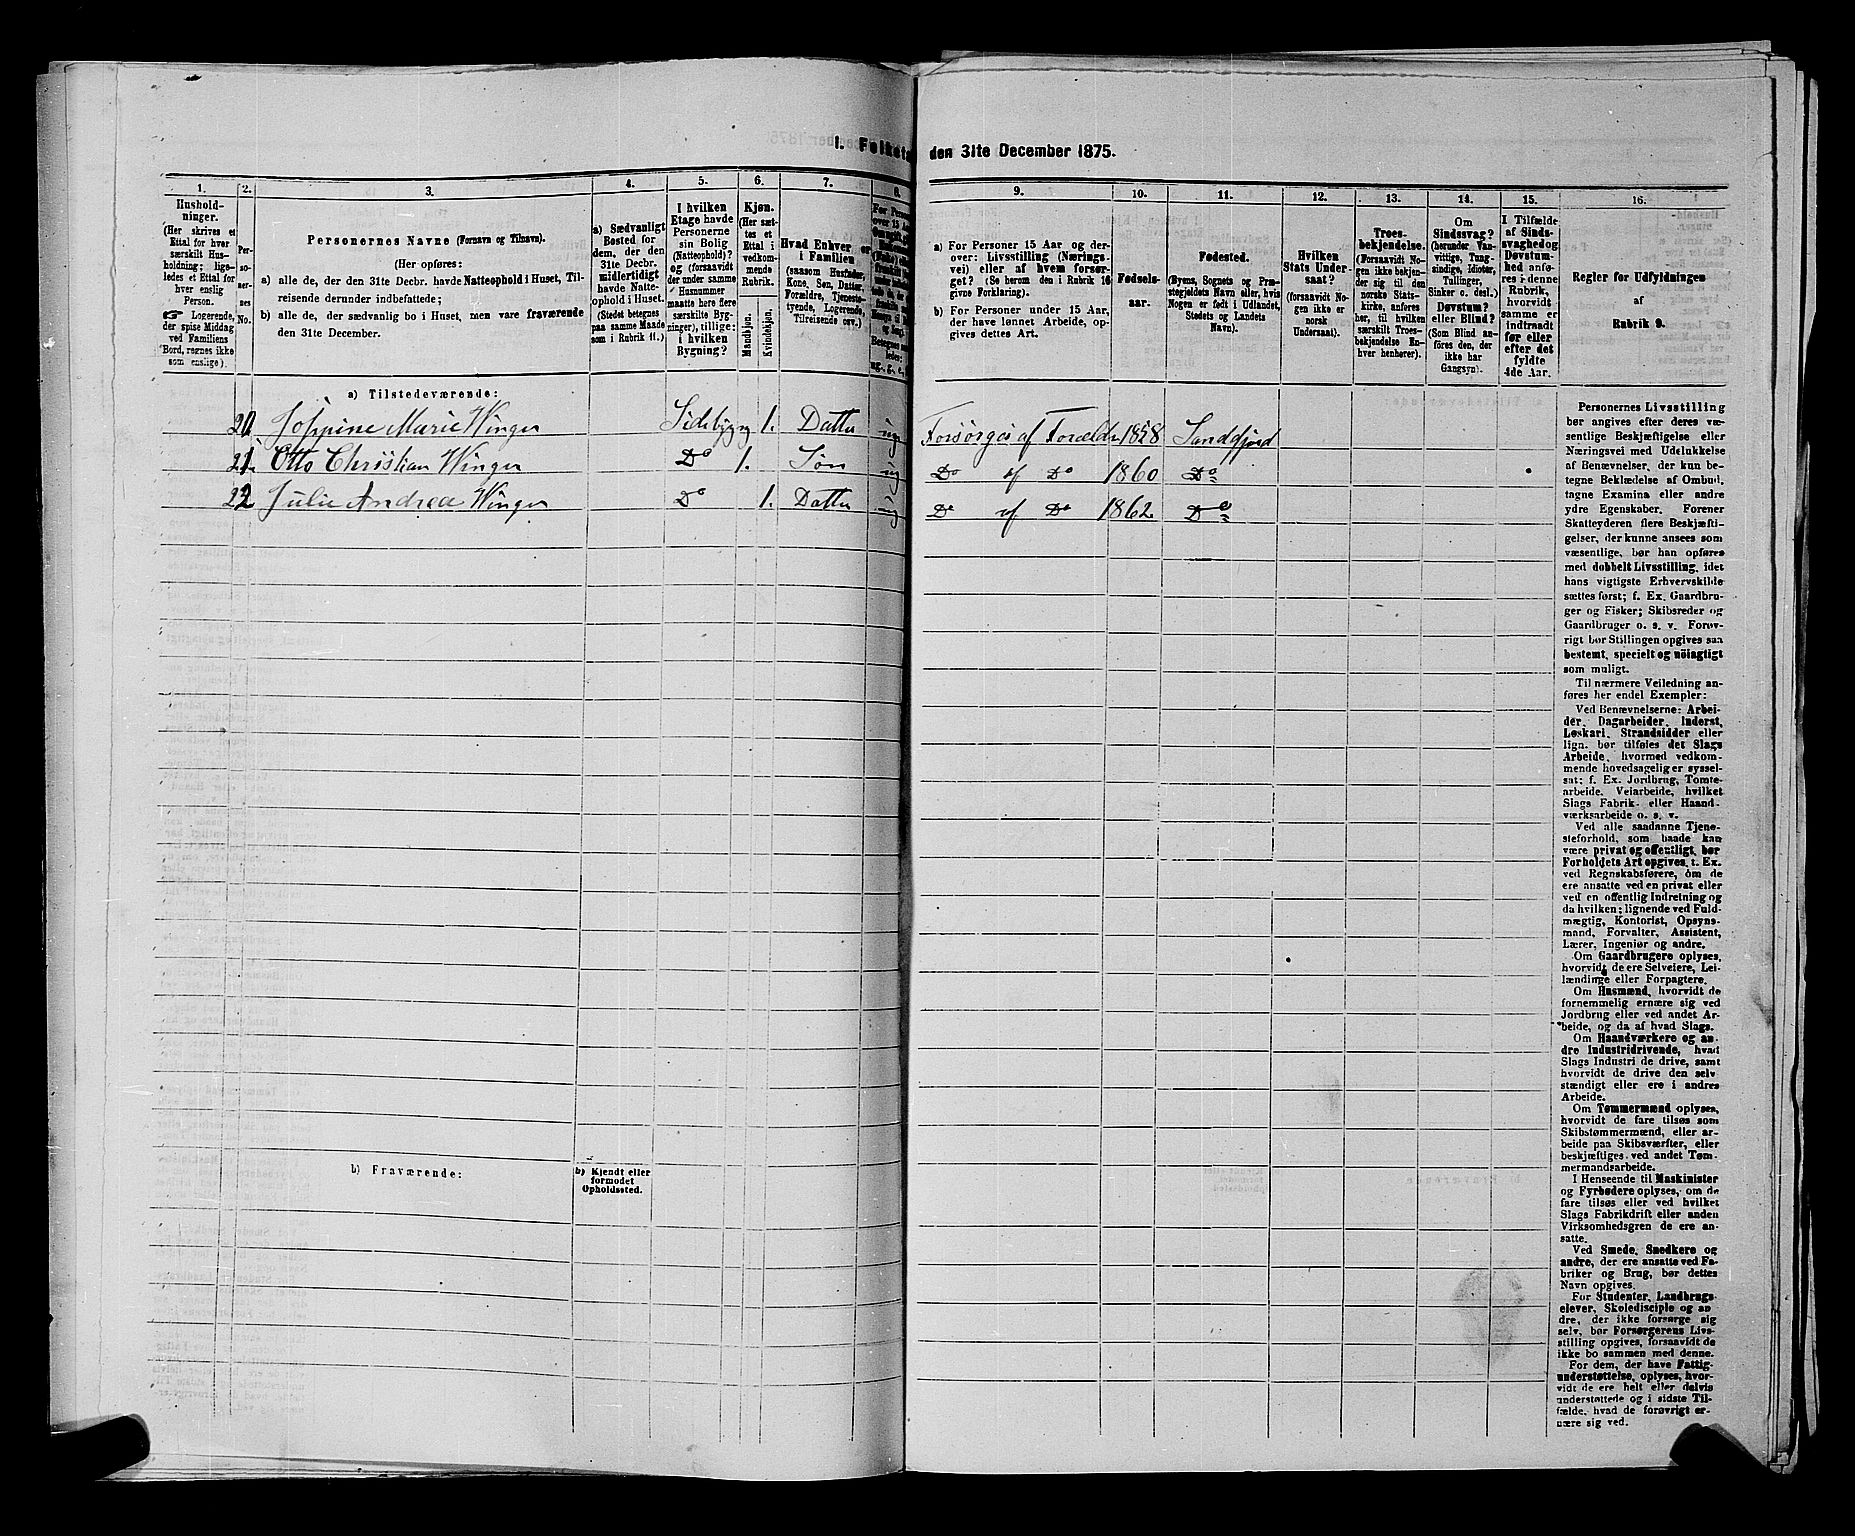 I. Folketæ
den 31te December 1875.
1.
2.
3.
4.
5.
6.
7.
8.
9.
10.
11.
12.
13.
14.
15.
16.
Hushold-
ninger.
(Her skrives et
Ettal for hver
særskilt Hus-
holdning; lige-
ledes et Ettal for
hver enslig
Person.
☞ Logerende,
der spise Middag
ved Familiens
Bord, regnes ikke
som enslige).
Per-
so-
ner-
nes
No.
Personernes Navne (Fornavn og Tilnavn).
(Her opføres:
a) alle de, der den 31te Decbr. havde Natteophold i Huset, Til-
reisende derunder indbefattede;
b) alle de, der sædvanlig bo i Huset, men vare fraværende
den 31te December.
a) Sædvanligt
Bosted for
dem, der den
31te Decbr.
midlertidigt
havde Natte-
ophold i Huset.
(Stedet betegnes
paa samme Maade
som i Rubrik 11.)
I hvilken
Etage havde
Personerne
sin Bolig
(Natteophold)?
og (forsaavidt
der under samme
Husnummer
maatte høre flere
særskilte Byg-
ninger), tillige:
i hvilken
Bygning?
Kjøn.
(Her sæt-
tes et
Ettal i
vedkom-
mende
Rubrik.
Mandkjøn.
Kvindekjøn.
Hvad Enhver er
i Familien
(saasom Husfader,
Kone, Søn, Datter,
Forældre, Tjeneste-
tyende, Logerende,
Tilreisende osv.)
For Persone
over 15 Aar
a) For Personer 15 Aar og der-
over: Livsstilling (Nærings-
vei) eller af hvem forsør-
get? (Se herom den i Rubrik 16
givne Forklaring).
b) For Personer under 15 Aar,
der have lønnet Arbeide, op-
gives dettes Art.
Fødsels-
aar.
Fødested.
(Byens, Sognets og Præ-
stegjeldets Navn eller, hvis
Nogen er født i Udlandet,
Stedets og Landets
Navn).
Hvilken
Stats Under-
saat?
(forsaavidt No-
gen ikke er
norsk
Undersaat).
Troes-
bekjendelse.
(Forsaavidt No-
gen ikke bekjen-
der sig til den
norske Stats-
kirke, anføres
her, til hvilken
særskilt Troes-
bekjendelse En-
hver henhører).
Om
Sindssvag?
(herunder Van-
vittige, Tung-
sindige, Idioter,
Tullinger,
Sinker o. desl.)
Døvstum?
eller Blind?
(Som Blind an-
føres den, der
ikke har
Gangsyn).
I Tilfælde
af Sinds-
svaghed og
Døvstum-
hed anfø-
res i denne
Rubrik,
hvorvidt
samme er
indtraadt
før eller
efter det
fyldte
4de Aar.
Regler for Udfyldningen
af
Rubrik 9.
a) Tilstedeværende:
20 Josefine Marie Winger Sidebygg 1. Datter ug Forsørges af Forældre 1858 Sandefjord
21. Otto Christian Winger Do 1. Søn ug Do af Do 1860 Do
22 Julie Andrea Winger Do 1. Datter ug Do af Do 1862 Do
b) Fraværende:
b) Kjendt eller
formodet
Opholdssted.
Personernes Livsstilling
bør angives efter deres væ-
sentlige Beskjæftigelse eller
Næringsvei med Udelukkelse
af Benævnelser, der kun be-
tegne Beklædelse af Ombud,
tagne Examina eller andre
ydre Egenskaber. Forener
Skatteyderen flere Beskjæfti-
gelser, der kunne ansees som
væsentlige, bør han opføres
med dobbelt Livsstilling, idet
hans vigtigste Erhvervskilde
sættes først; f. Ex. Gaardbru-
ger og Fisker; Skibsreder og
Gaardbruger o. s. v. Forøv-
rigt bør Stillingen opgives saa
bestemt, specielt og nöiagtigt
som muligt.
Til nærmere Veiledning an-
føres her endel Exempler:
Ved Benævnelserne: Arbei-
der, Dagarbeider, Inderst,
Løskarl, Strandsidder eller
lign. bør tilføies det Slags
Arbeide, hvormed vedkom-
mende hovedsagelig er syssel-
sat; f. Ex. Jordbrug, Tomte-
arbeide, Veiarbeide, hvilket
Slags Fabrik- eller Haand-
værksarbeide o. s. v.
Ved alle saadanne Tjene-
steforhold, som baade kan
være privat og offentligt, bør
Forholdets Art opgives, t. Ex.
ved Regnskabsførere, om de
ere ansatte ved en privat eller
ved en offentlig Indretning og
da hvilken; lignende ved Fuld-
mægtig, Kontorist, Opsyns-
mand, Forvalter, Assistent,
Lærer, Ingeniør og andre.
Om Gaardbrugere oplyses,
hvorvidt de ere Selveiere, Lei-
lændinge eller Forpagtere.
Om Husmænd, hvorvidt de
fornemmelig ernære sig ved
Jordbrug eller ved andet Ar-
beide, og da af hvad Slags.
Om Haandværkere og an-
dre Industridrivende, hvad
Slags Industri de drive, samt
hvorvidt de drive den selv-
stændigt eller ere i andres
Arbeide.
Om Tømmermænd oplyses,
hvorvidt de fare tilsøs som
Skibstømmermænd, eller ar-
beide paa Skibsværfter, eller
beskjæftiges ved andet Tøm-
mermandsarbeide.
I Henseende til Maskinister
og Fyrbødere oplyses, om de
fare tilsøs eller ved hvilket
Slags Fabrikdrift eller anden
Virksomhedsgren de ere an-
satte.
Ved Smede, Snedkere og
andre, der ere ansatte ved Fa-
briker og Brug, bør dettes
Navn opgives.
For Studenter, Landbrugs-
elever, Skoledisciple og an-
dre, der ikke forsørge sig
selv, bør Forsørgerens Livs-
stilling opgives, forsaavidt de
ikke bo sammen med denne.
For dem, der have Fattig-
understøttelse, oplyses, hvor-
vidt de ere helt eller delvis
understøttede og i sidste Til-
fælde, hvad de forøvrigt er-
nære sig ved.